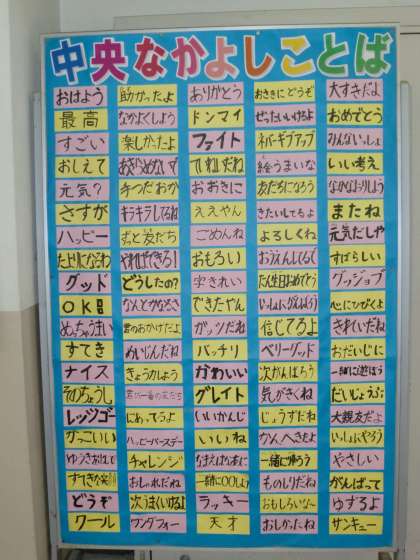 中央なかよしことば
おはよう 助かったよ ありがとう おさきにどうぞ 大すきだよ
最高 なかよくしよう ドンマイ ぜったいいけるよ おめでとう
すごい 楽しかったよ ファイト ネバーギブアップ みんないっしょ
おしえて あきらめないで ていねいだね 絵うまいな いい考え
元気? 手つだおか おおきに 友だちになろう なかなおりしよう
さすが キラキラしてるね ええやん きたいしてるよ またね
ハッピー ずっと友だち ごめんね よろしくね 元気だしや
たよりになるわ やればできる! おもろい おうえんしてるで すばらしい
グッド どうしたの? 字きれい たん生日おめでとう グッジョブ
OK なんとかなるさ できたやん いっしょにがんばろう 心にひびくよ
めっちゃうまい 君のおかげだよ ガッツだね 信じてるよ きれいだね
すてき めいじんだね バッチリ ベリーグッド おだいじに
ナイス きょうりょくしよう かわいい 次がんばろう 一緒に遊ぼう
そのちょうし 君が一番の友だち グレイト 気がきくね だいじょうぶ
レッツゴー にあってるよ いいかんじ じょうずだね 大親友だよ
かっこいい ハッピーバースデー いいね かんぺきだよ いっしょにやろう
ゆうきあるね チャレンジ 一緒に帰ろう やさしい
すてきな笑顔 おしゃれだね 一緒に〇〇しよう ものしりだね がんばって
どうぞ 次うまくいけるよ ラッキー おもしろいな~ ゆずるよ
クール ワンダフォー 天才 おしかったね サンキュー